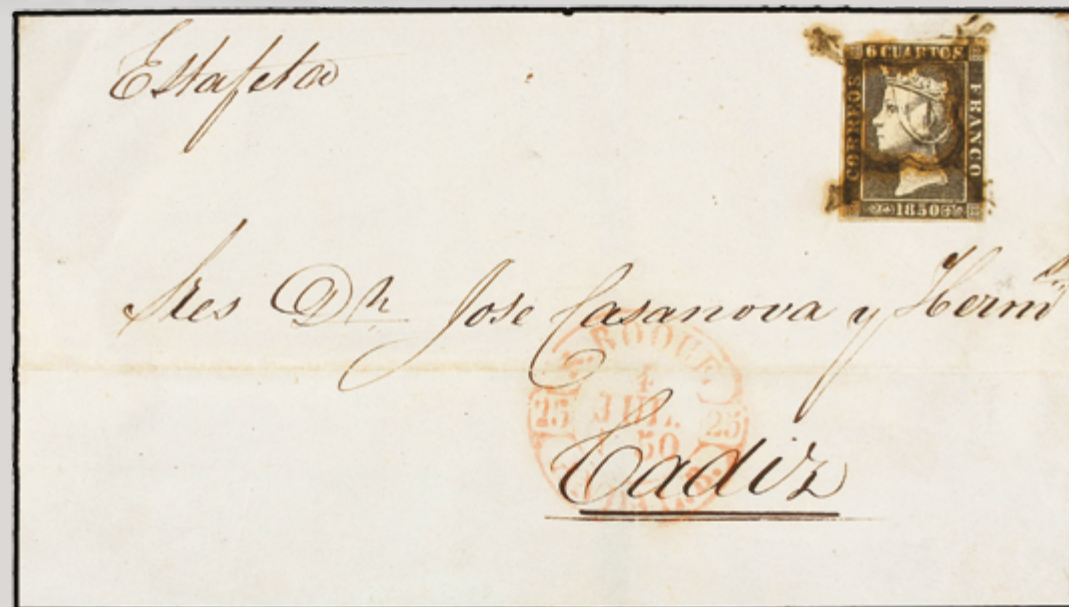 Estafeta
6 CUARTOS
CORREOS
FRANCO
1850
Sres Dn Jose Casanova y Herms
S. ROQUE.
4
JUL.
1850
25 25
Cadiz